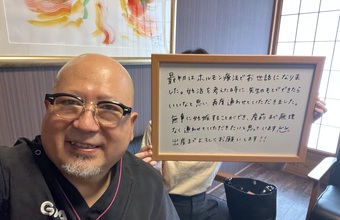 最初はホルモン療法でお世話になりま
した。妊活を考えた時に先生のもとでできたら
いいなと思い、再度通わせていただきました。
無事に妊娠することができ、産前まで無理
なく通わせていただきたいと思っています
出産までよろしくお願いします!!